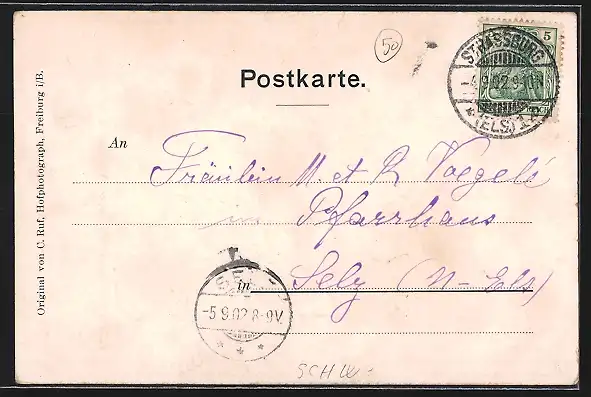 50
5
STRASSBURG
9.02.9-10
(ELS) 1
Postkarte.
An
Fräulein M. et R. Voegelé
im Pfarrhaus
in Selz (N-Els)
SELZ
-5.9.02.8-9V.
* * *
SCHW-
Original von C. Ruf, Hofphotograph, Freiburg i/B.